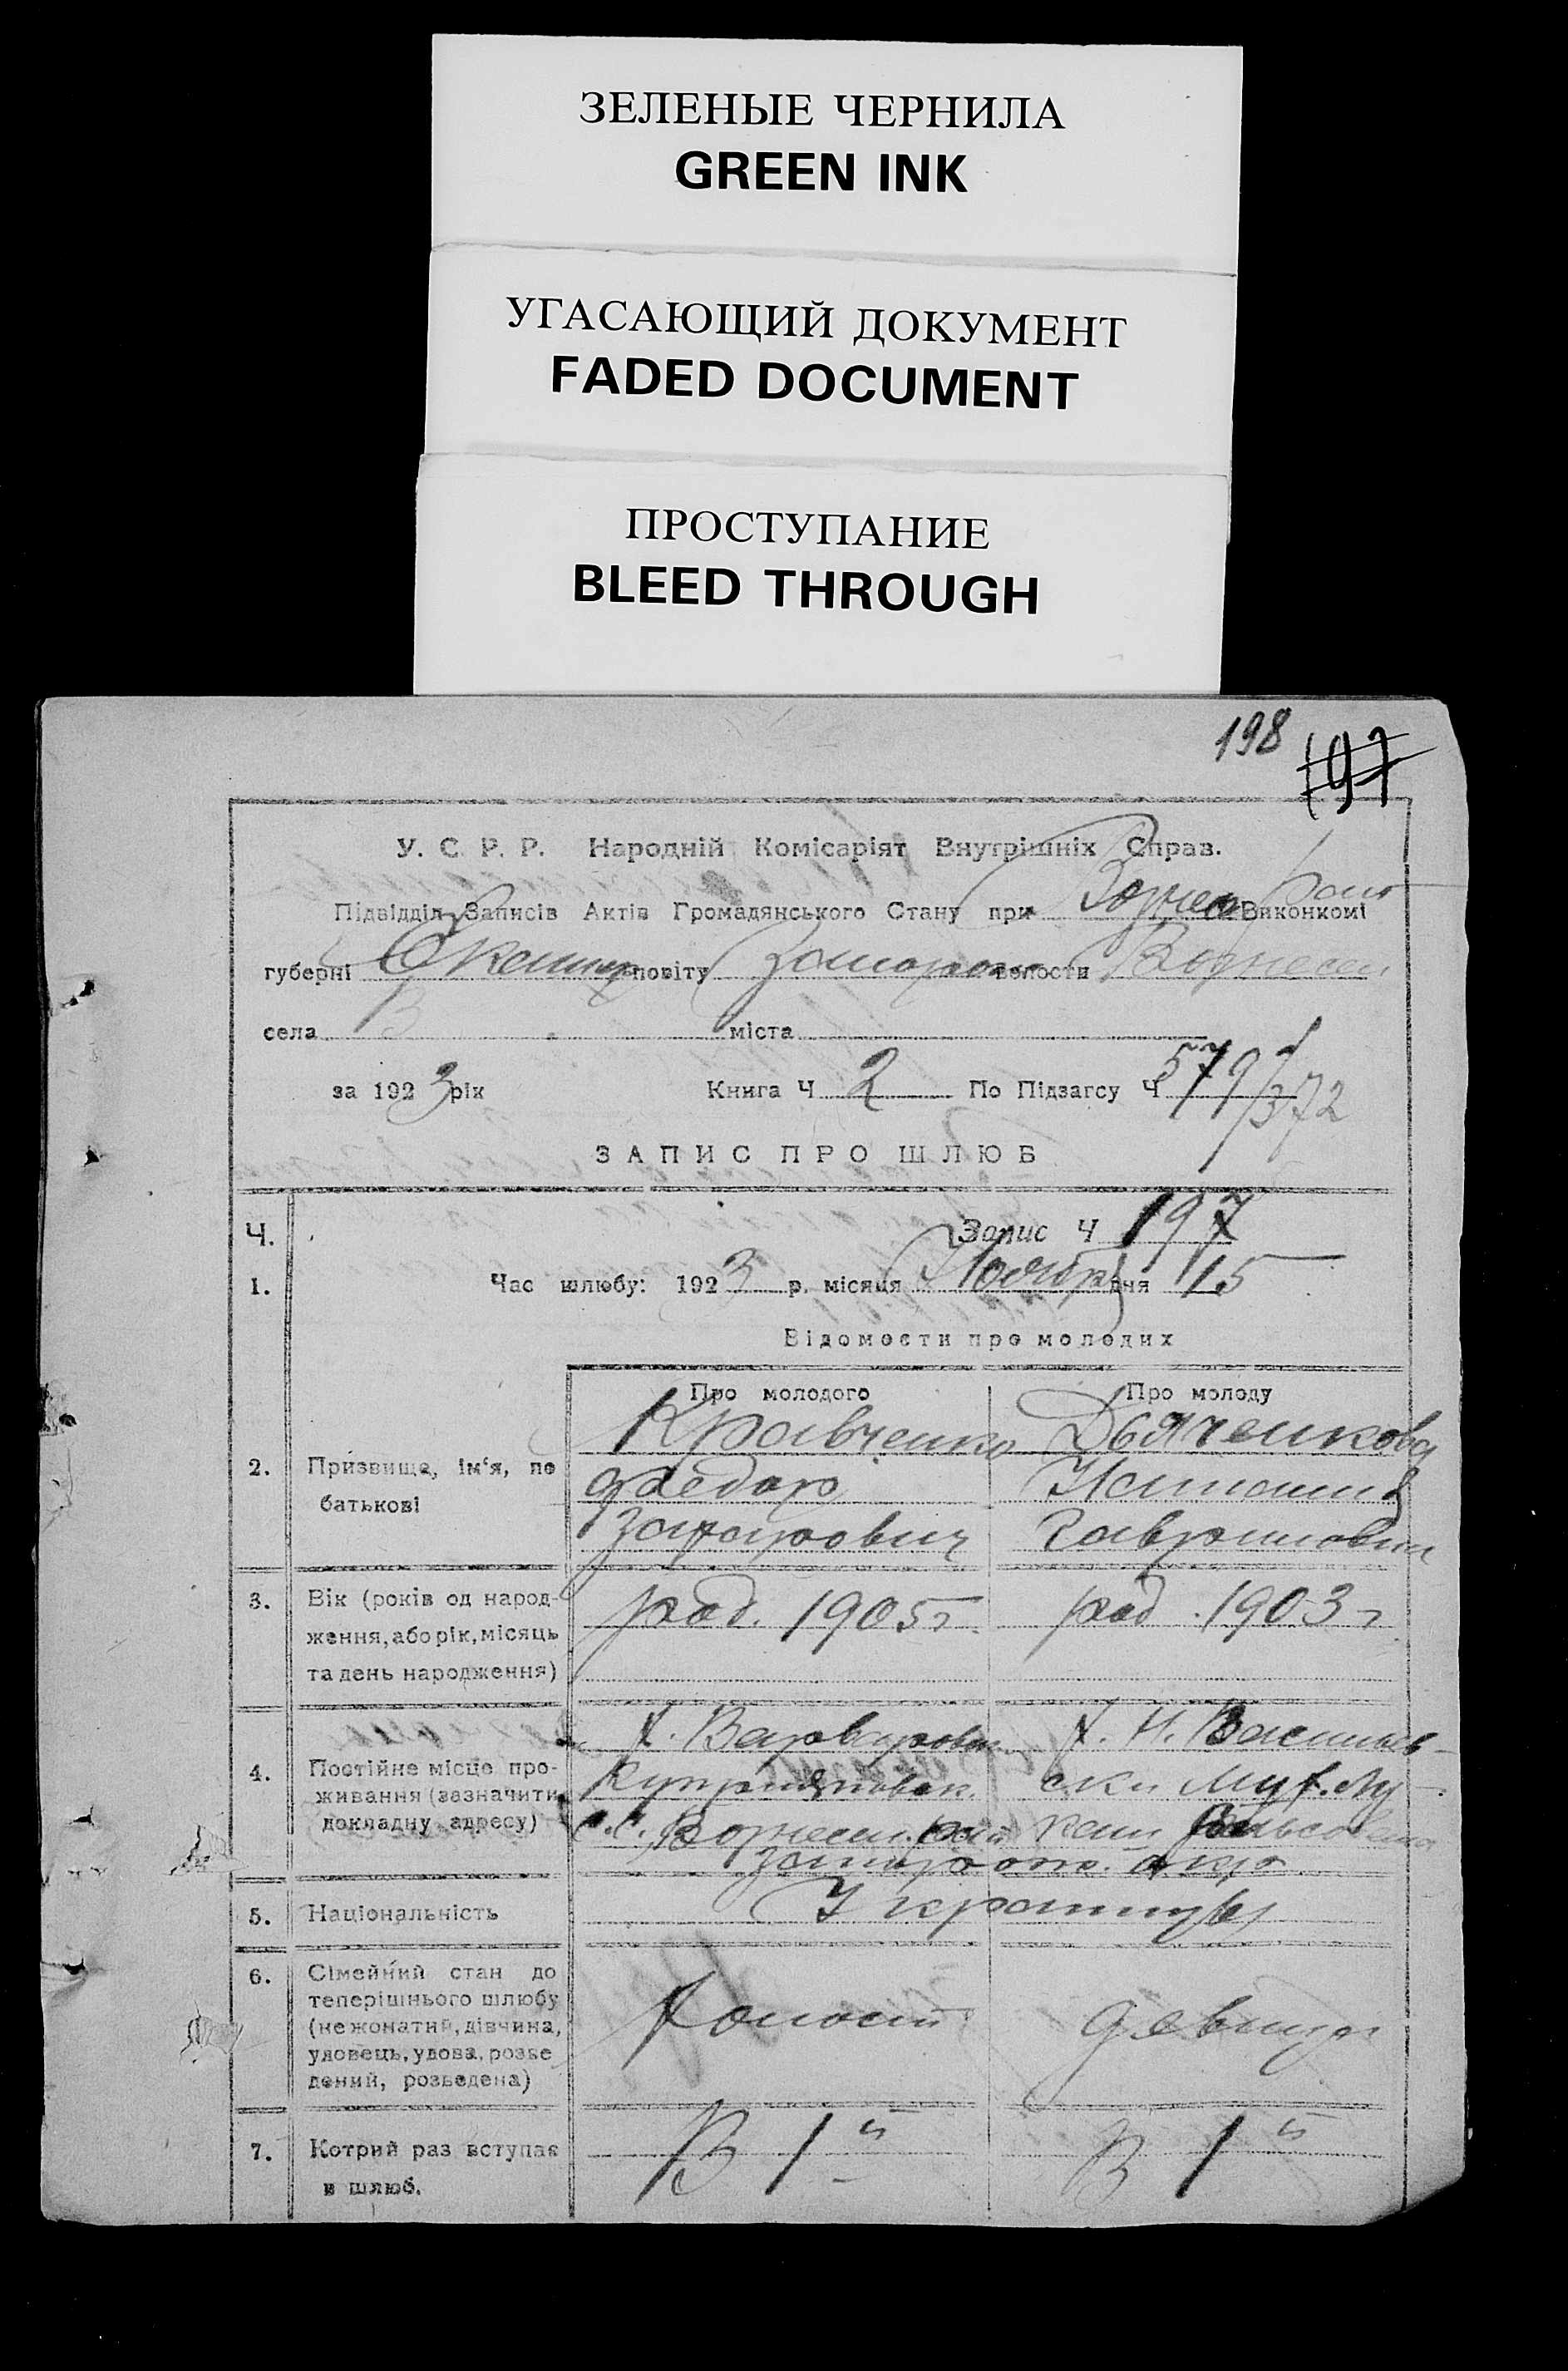 ЗЕЛЕНЫЕ ЧЕРНИЛА
GREEN INK
УГАСАЮЩИЙ ДОКУМЕНТ
FADED DOCUMENT
ПРОСТУПАНИЕ
BLEED THROUGH
198 197
У. С. Р. Р. Народній Комісаріят Внутрішніх Справ.
Підвідділ Записів Актів Громадянського Стану при Вознес Виконкомі
губерні Екатер повіту Запорож волости Вознесен
села В міста
за 1923 рік Книга Ч 2 По Підзагсу Ч 579/372
ЗАПИС ПРО ШЛЮБ
Ч. Запис Ч 197
1. Час шлюбу: 1923 р. місяця Ноября дня 15
Відомости про молодих
Про молодого Про молоду
Кравченко Дьяченкова
2. Призвище, ім'я, по Федор
батькові Захарович Гавриловн
3. Вік (років од народ- род. 1905 г. род. 1903 г
ження, або рік, місяць
та день народження)
х. Варваровк х. Н. Васильев-
4. Постійне місце про- Куприяновск.
живання (зазначити с.с. Вознесен. рай
докладну адресу) Запорож. окр
5. Національність Украинцы
6. Сімейний стан до
теперішнього шлюбу Холост девица
(не жонатий, дівчина,
удовець, удова, розве
дений, розведена)
7. Котрий раз вступає В 1й В 1й
в шлюб.